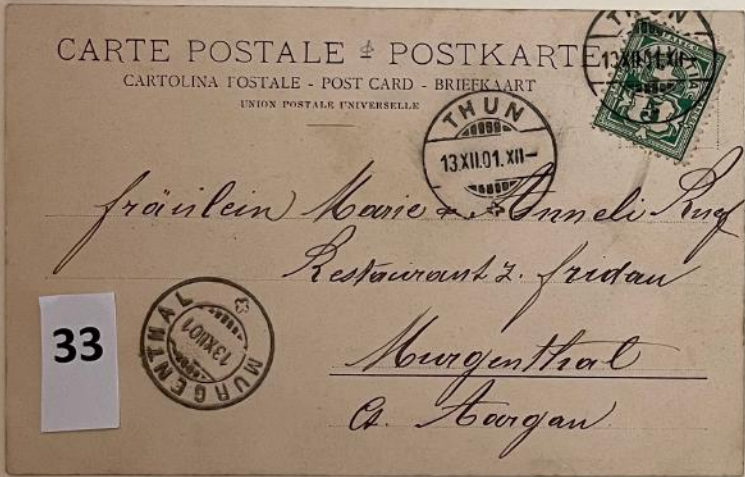 CARTE POSTALE & POSTKARTE
CARTOLINA POSTALE - POST CARD - BRIEFKAART
UNION POSTALE UNIVERSELLE
THUN
13.XII.01.XII-
THUN
13.XII.01.XII-
Fräulein Marie & Anneli
Restaurant z. Fridau
Murgenthal
Ct. Aargau
MURGENTHAL
13.XII.01
33